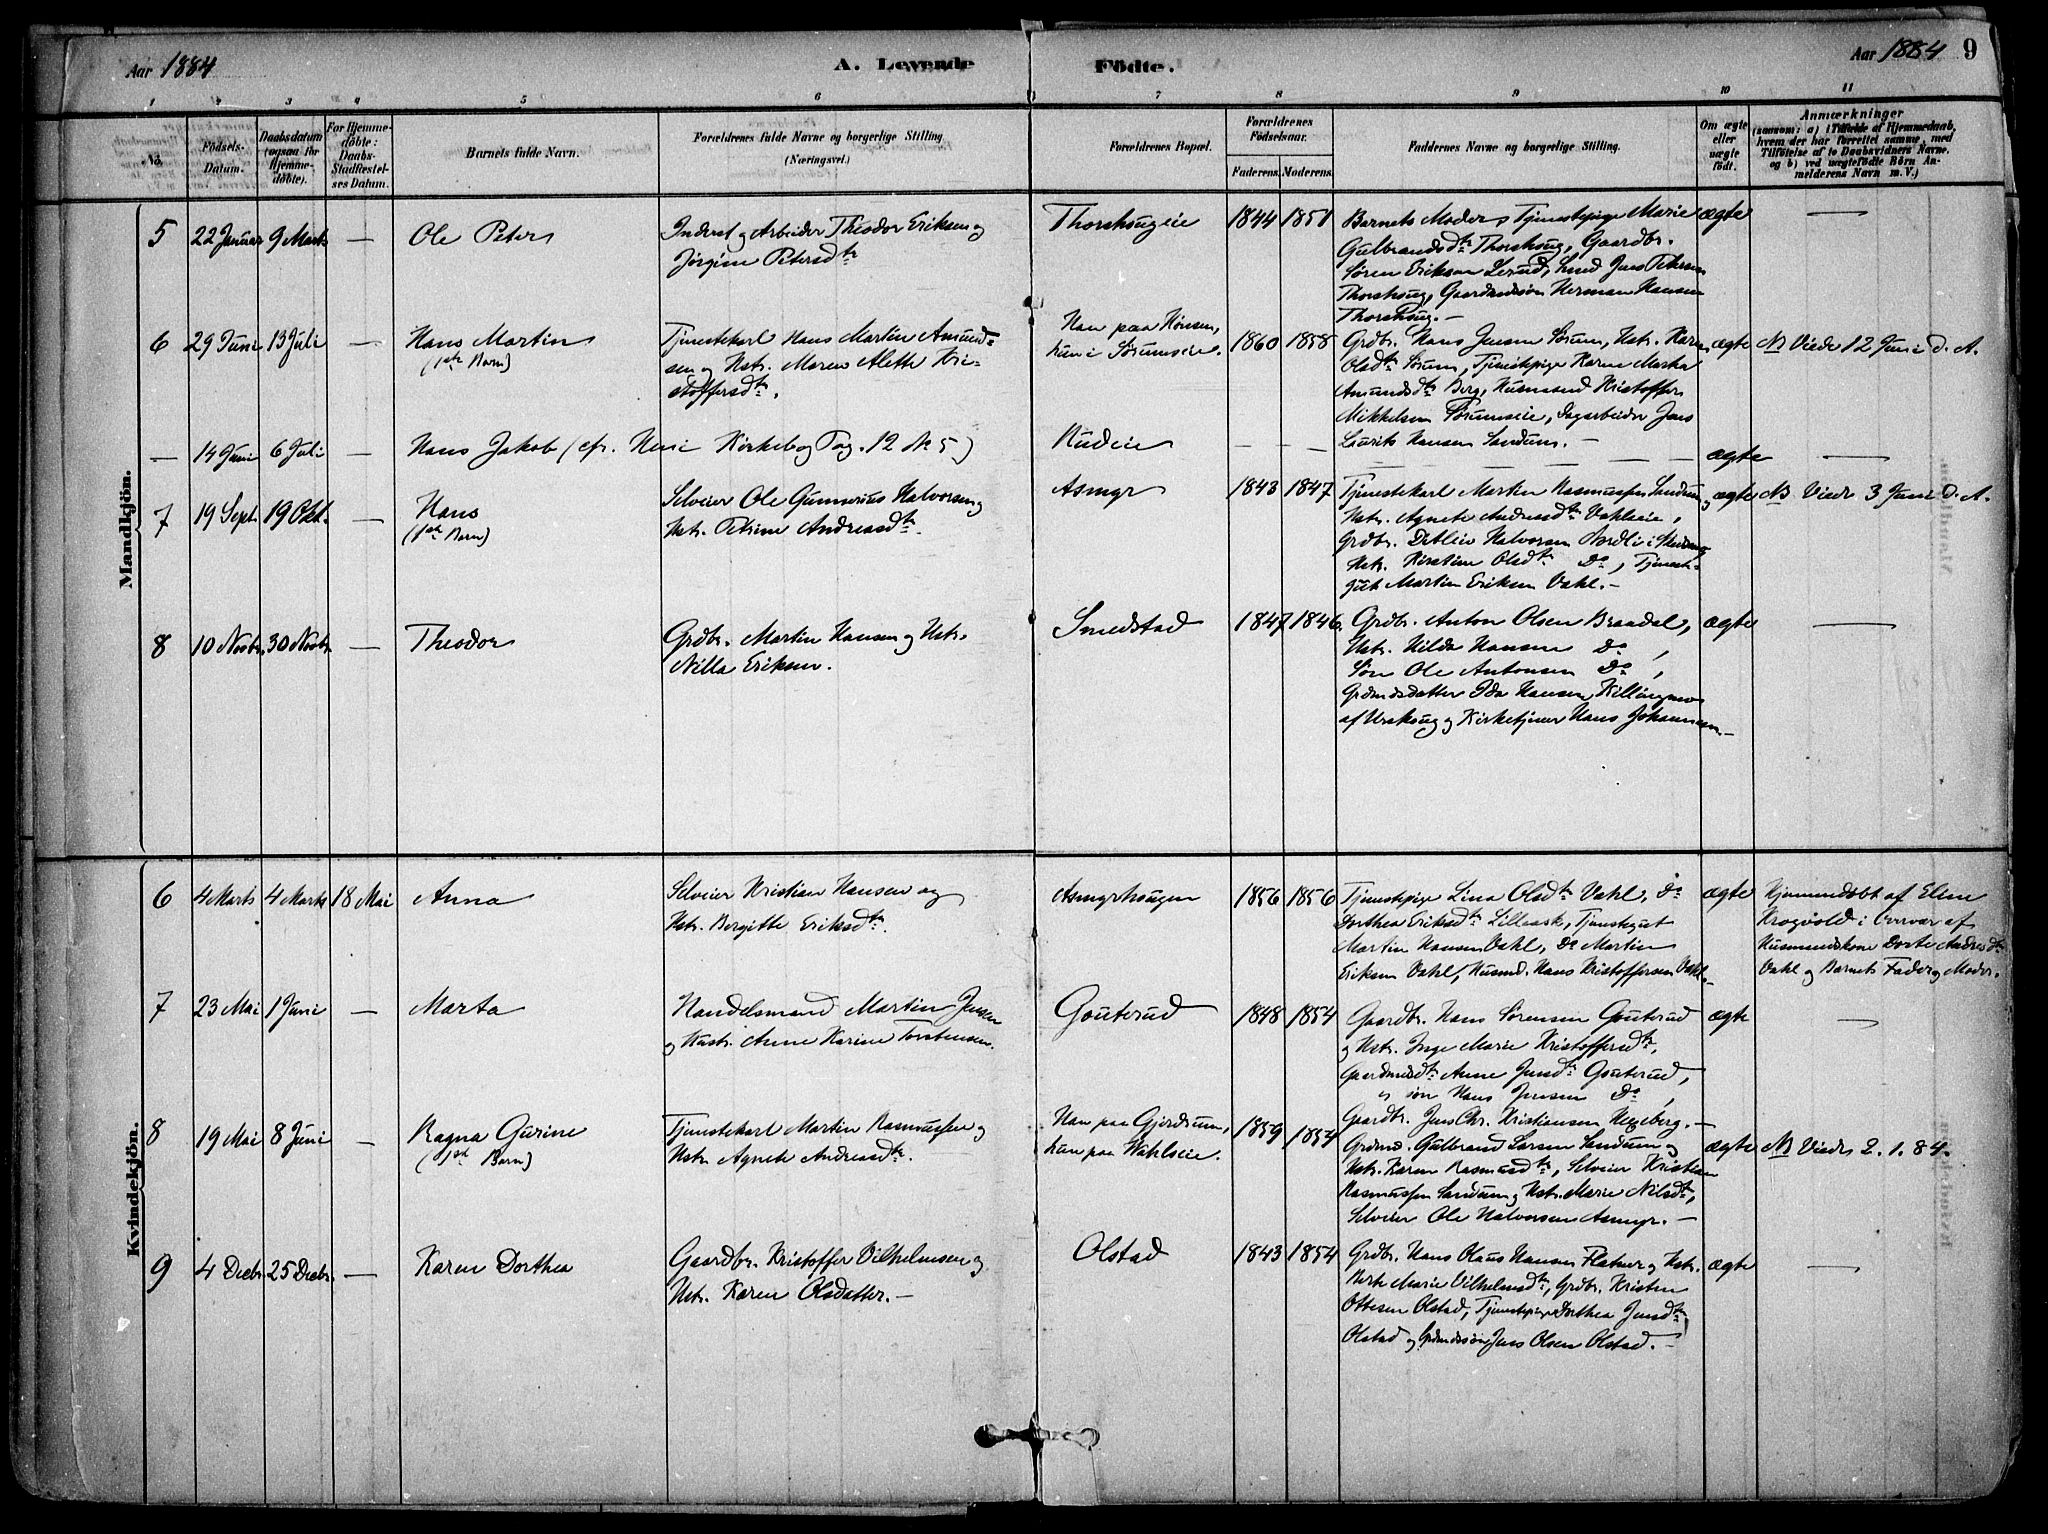 Aar 1884 A. Levende Födte. Aar 1884 9
1 2 3 4 5 6 7 8 9 10 11
No.
Födsels-
Datum.
Daabsdatum
(ogsaa for
Hjemme-
döbte).
For Hjemme-
döbte:
Daabs-
Stadfæstel-
ses Datum.
Barnets fulde Navn.
Forældrenes fulde Navne og borgerlige Stilling.
(Næringsvei.)
Forældrenes Bopæl.
Forældrenes
Födselsaar.
Faderens. Moderens.
Faddernes Navne og borgerlige Stilling.
Om ægte
eller
uægte
födt.
Anmærkninger
(saasom: a) i Tilfælde af Hjemmedaab,
hvem der har forrettet samme, med
Tilföielse af to Daabsvidners Navne.
og b) ved uægtefödte Börn An-
melderens Navn m. V.)
Mandkjön.
5 22 Januar 9 Marts — Ole Peter
Inderst og Arbeider Theodor Eriksen og
Jørgine Petersdtr
Thorshougeie 1844 1851
Barnets Moder, Tjenestepige Marie
Gulbrandsdtr Thorshoug, Gaardbr.
Søren Eriksen Lerud, Smed Jens Petersen
Thorshoug, Gaardmandssøn Herman Hansen
Thorshoug. —
ægte —
6 29 Juni 13 Juli — Hans Martin
(1ste Barn)
Tjenestekarl Hans Martin Amund-
sen og Hstr. Maren Alette Kri-
stoffersdtr.
Han paa Hønsen,
hun i Sørumseie. 1860 1858
Grdbr. Hans Jensen Sørum, Hstr. Karen
Olsdtr Sørum, Tjenestepige Karen Marta
Amundsdtr Berg, Husmand Kristoffer
Mikkelsen Sørumseie, Dagarbeider Jens
Laurits Hansen Sandum. —
ægte NB Viede 12 Juni d. A.
— 14 Juni 6 Juli Hans Jakob (cfr. Kirkebog Pag. 12 No 5) Rudeie — — ægte —
7 19 Sept. 19 Okt. — Hans
(1ste Barn)
Selveier Ole Gunnerius Halvorsen og
Hstr. Petrine Andreasdtr.
Asmyr 1843 1847
Tjenestekarl Martin Rasmussen Sandum og
Hstr. Agnete Andreasdtr Vahlseie,
Grdbr. Detlev Halvorsen Nordli i
Hstr. Kirstine Olsdtr Do, Tjeneste-
gut Martin Eriksen Vahl. —
ægte NB Viede 3 Juni d. A.
8 10 Novbr. 30 Novbr. — Theodor
Grdbr. Martin Hansen og Hstr.
Nilla Eriksen.
Smedstad 1847 1846.
Grdbr. Anton Olsen Braadal,
Hstr. Hilda Hansen Do,
Søn Ole Antonsen Do,
Grdmdsdatter Ida Hansen Killingmo
af Urskoug og Kirketjener Hans Johannesen. —
ægte —
Kvindekjön.
6 4 Marts 4 Marts 18 Mai Anna
Selveier Kristian Hansen og
Hstr. Bergitte Eriksdtr.
Asmyrhougen 1856 1856
Tjenestepige Lina Olsdtr Vahl, Do
Dorthea Eriksdtr Lilleask, Tjenestegut
Martin Hansen Vahl, Do Martin
Eriksen Vahl, Husmd. Hans Kristoffersen Vahl. —
ægte
Hjemmedøbt af Elen
Krogvold i Overvær af
Husmandskone Dorte Andreasdtr
Vahl og Barnets Fader og Moder.
7 23 Mai 1 Juni — Marta
Handelsmand Martin Jensen
og Hustr. Anne Karine Torstensen.
Gouterud 1848 1854
Gaardbr. Hans Sørensen Gouterud
og Hstr. Inge Marie Kristoffersdtr,
Gaardmdsdtr Anne Jensdtr Gouterud,
og søn Hans Jensen Do,
Gaardbr. Jens Chr. Kristiansen Hegeberg. —
ægte —
8 19 Mai 8 Juni — Ragna Gurine
(1ste Barn)
Tjenestekarl Martin Rasmussen og
Hstr Agnete Andreasdtr.
Han paa Gjerdrum,
hun paa Wahlseie. 1859 1857
Grdmd. Gulbrand Larsen Sandum og
Hstr. Karen Rasmusdtr, Selveier Kristian
Rasmussen Sandum og Hstr. Marie Nilsdtr,
Selveier Ole Halvorsen Asmyr. —
ægte NB Viede 2. 1. 84.
9 4 Decbr. 25 Decbr. — Karen Dorthea
Gaardbr. Kristoffer Vilhelmsen og
Hstr. Karen Olsdatter. —
Olstad 1843 1854
Grdbr. Hans Olaus Hansen Flatner og Hstr.
Berte Marie Vilhelmsdtr, Grdbr. Kristen
Ottesen Olstad, Tjenestepige Dorthea Jensdtr
Olstad og Grdmdssøn Jens Olsen Olstad. —
ægte —